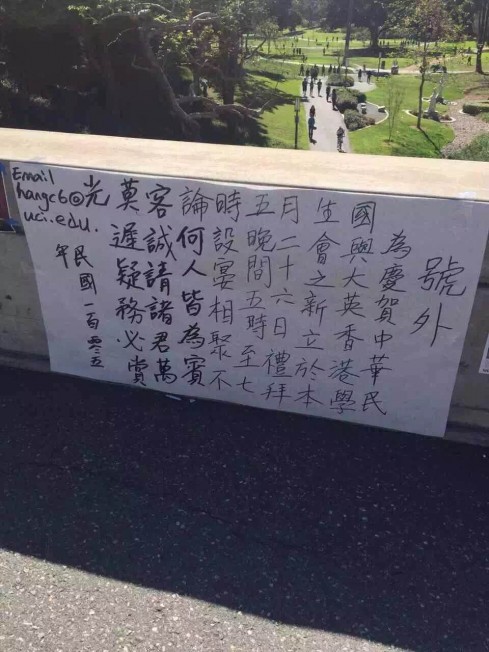 號外
為慶賀中華民
國與大英香港學
生會之新立於本
月二十六日禮拜
五晚間五時至七
時設宴相聚不
論何人皆為賓
客誠請諸君萬
莫遲疑務必賞
光
民國一百零五
年
Email
hangc6@
uci.edu.